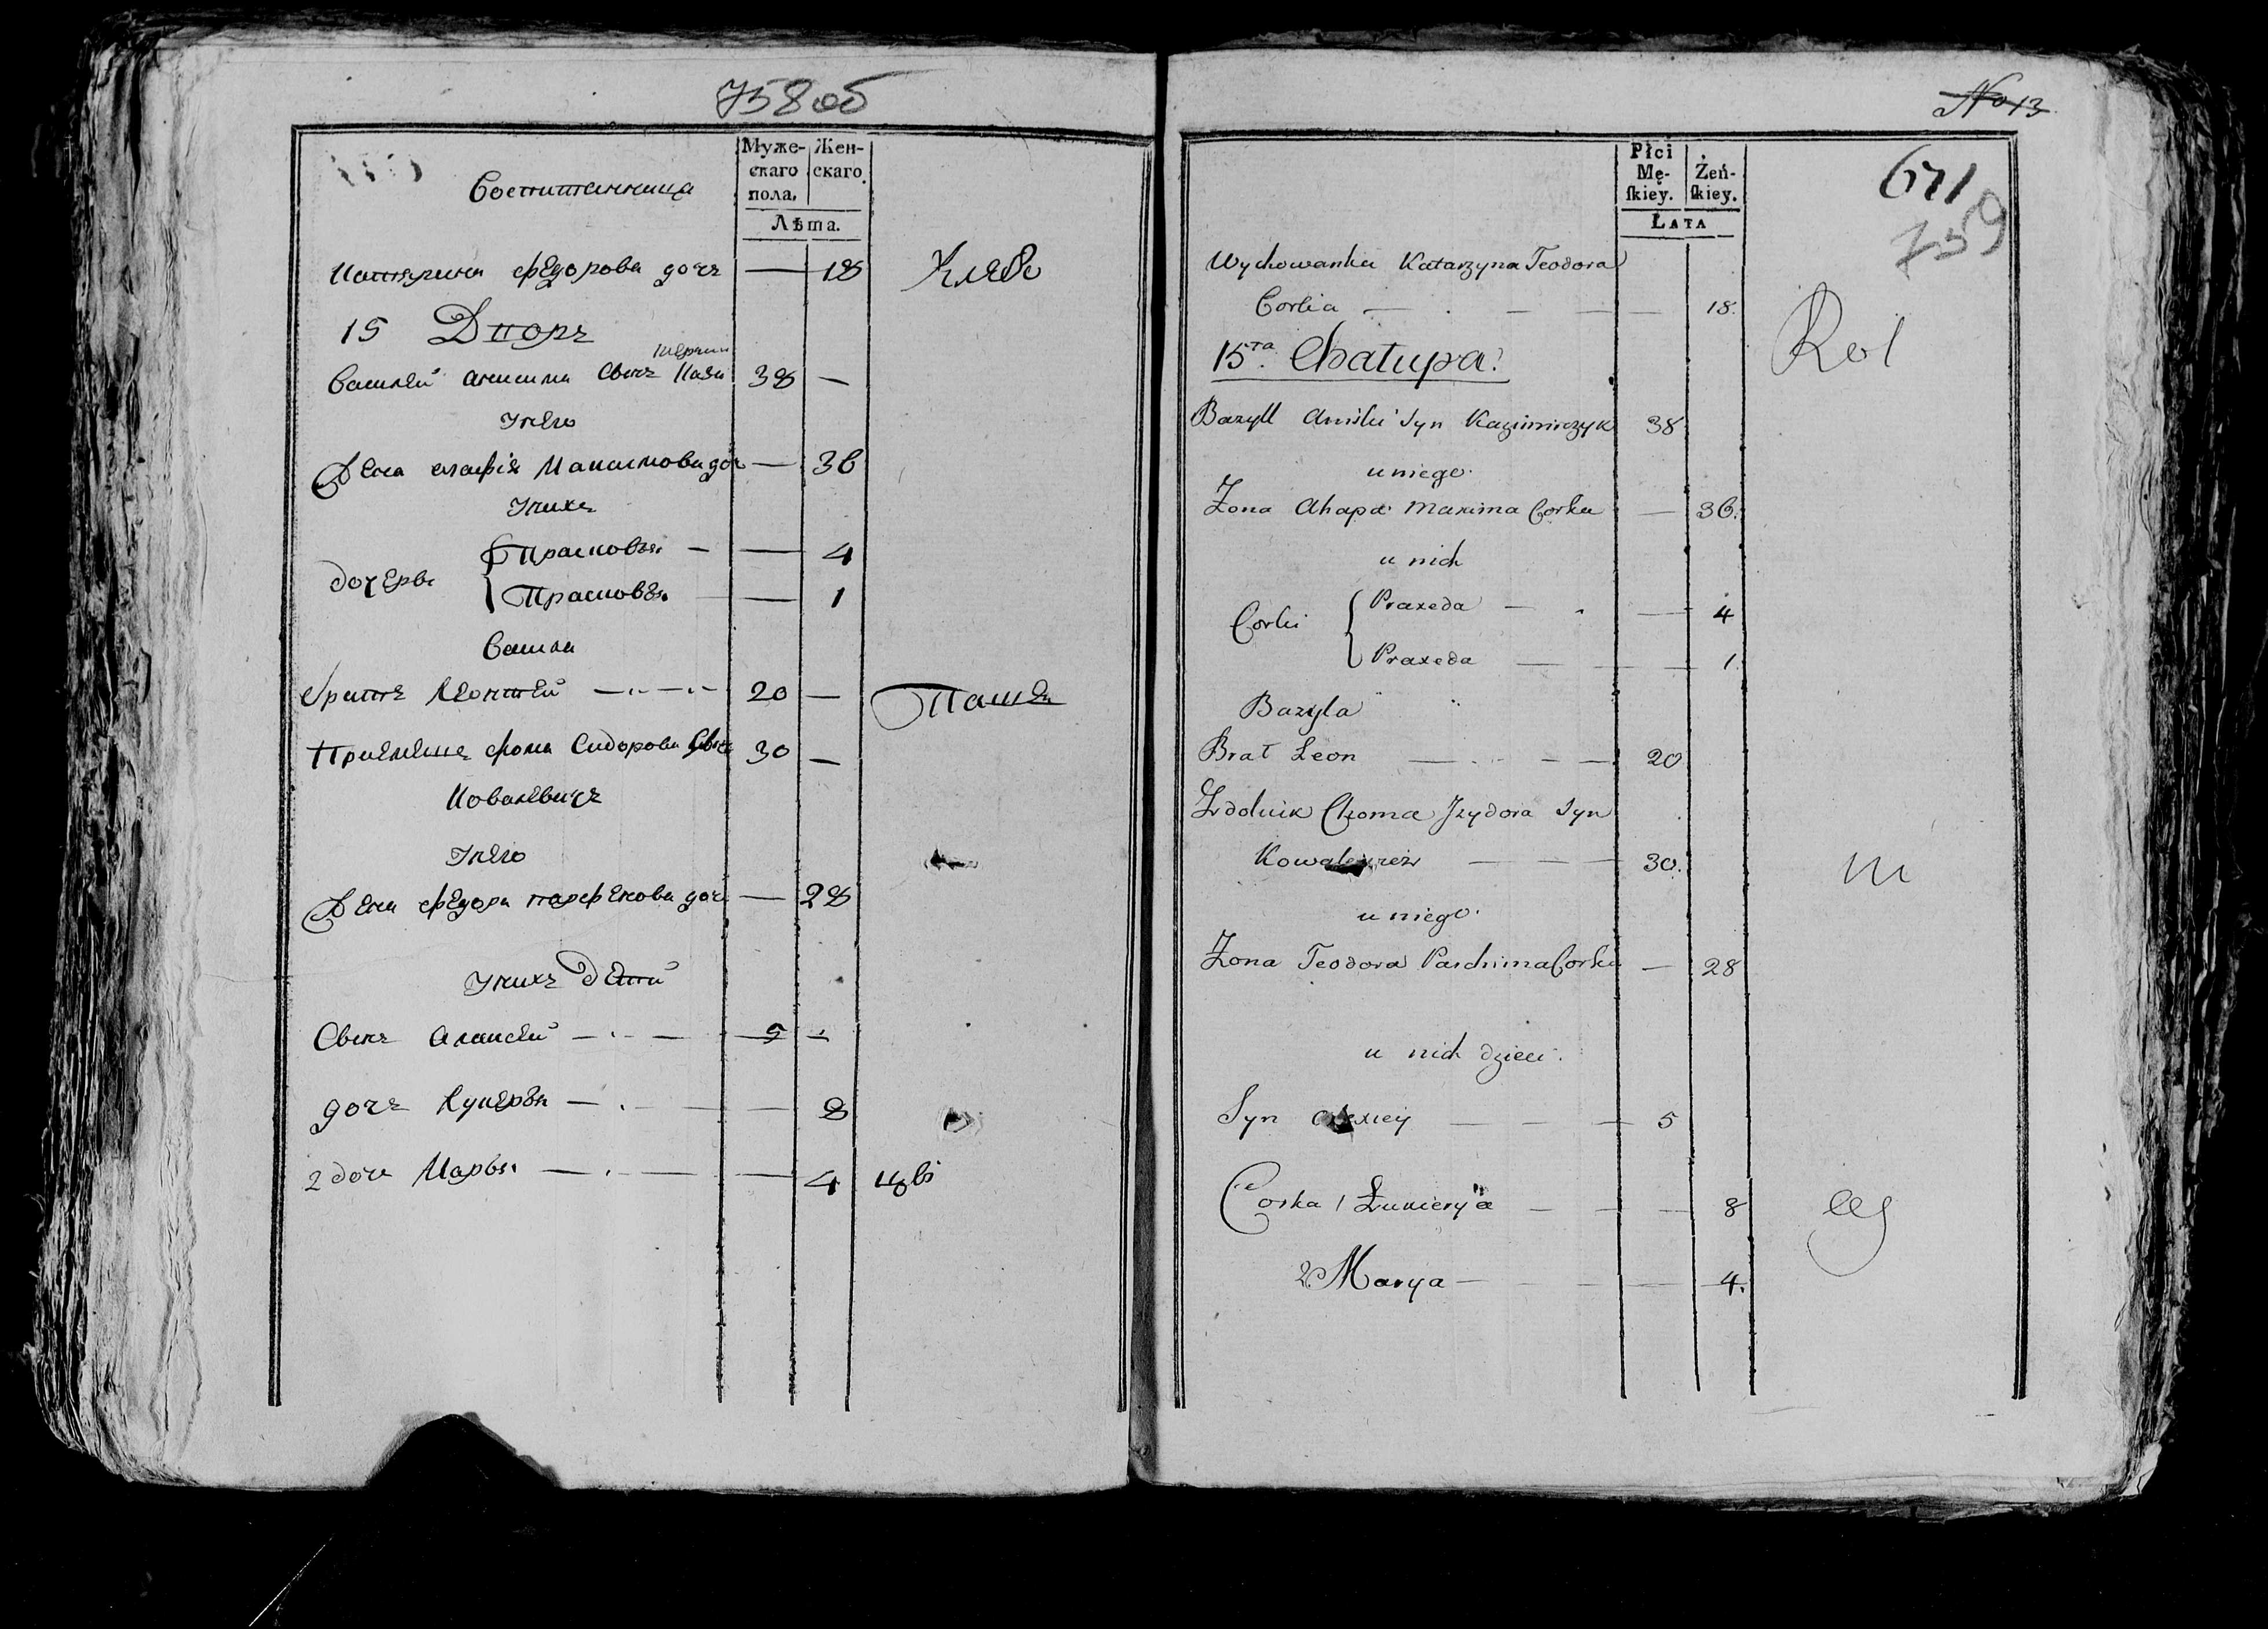 758 об
Муже-
скаго
пола.
Жен-
скаго
Лѣта.
Воспитанница
Катярина Федорова дочь — 18
15 Дворъ
Василей Анисима Сынъ 38 —
Унего
Жена Агафія Максимова доч — 36
Унихъ
дочери { Прасковья — — 4
Прасковья — 1
Васила
братъ Леонтей — 20 —
Приемышъ Фома Сидорова Сынъ 30 —
Ковалевичъ
Унего
Жена Федора Парфенова доч — 28
Унихъ дети
Сынъ Алексей — 5 —
дочь Лукерья — — 8
2 доч Марья — — 4
No 13
671
759
Płci
Mę-
skiey.
Żeń-
skiey.
LATA
Wychowanka Katarzyna Teodora
Corka — — — 18.
15ta. Chałupa.
Bazyll Syn Kazimirczyk 38
u niego.
Żona Ahapa Maxima Corka — 36.
u nich
Corki { Praxeda — — 4
Praxeda — — 1.
Bazyla
Brat Leon — — 20
Zdolnik Choma Jzydora Syn
Kowalewicz — — 30.
u niego.
Żona Teodora Parchima Corka — 28
u nich dzieci.
Syn Alexiey — — 5
Corka 1 Łukierya — — 8
2 Marya — — 4.